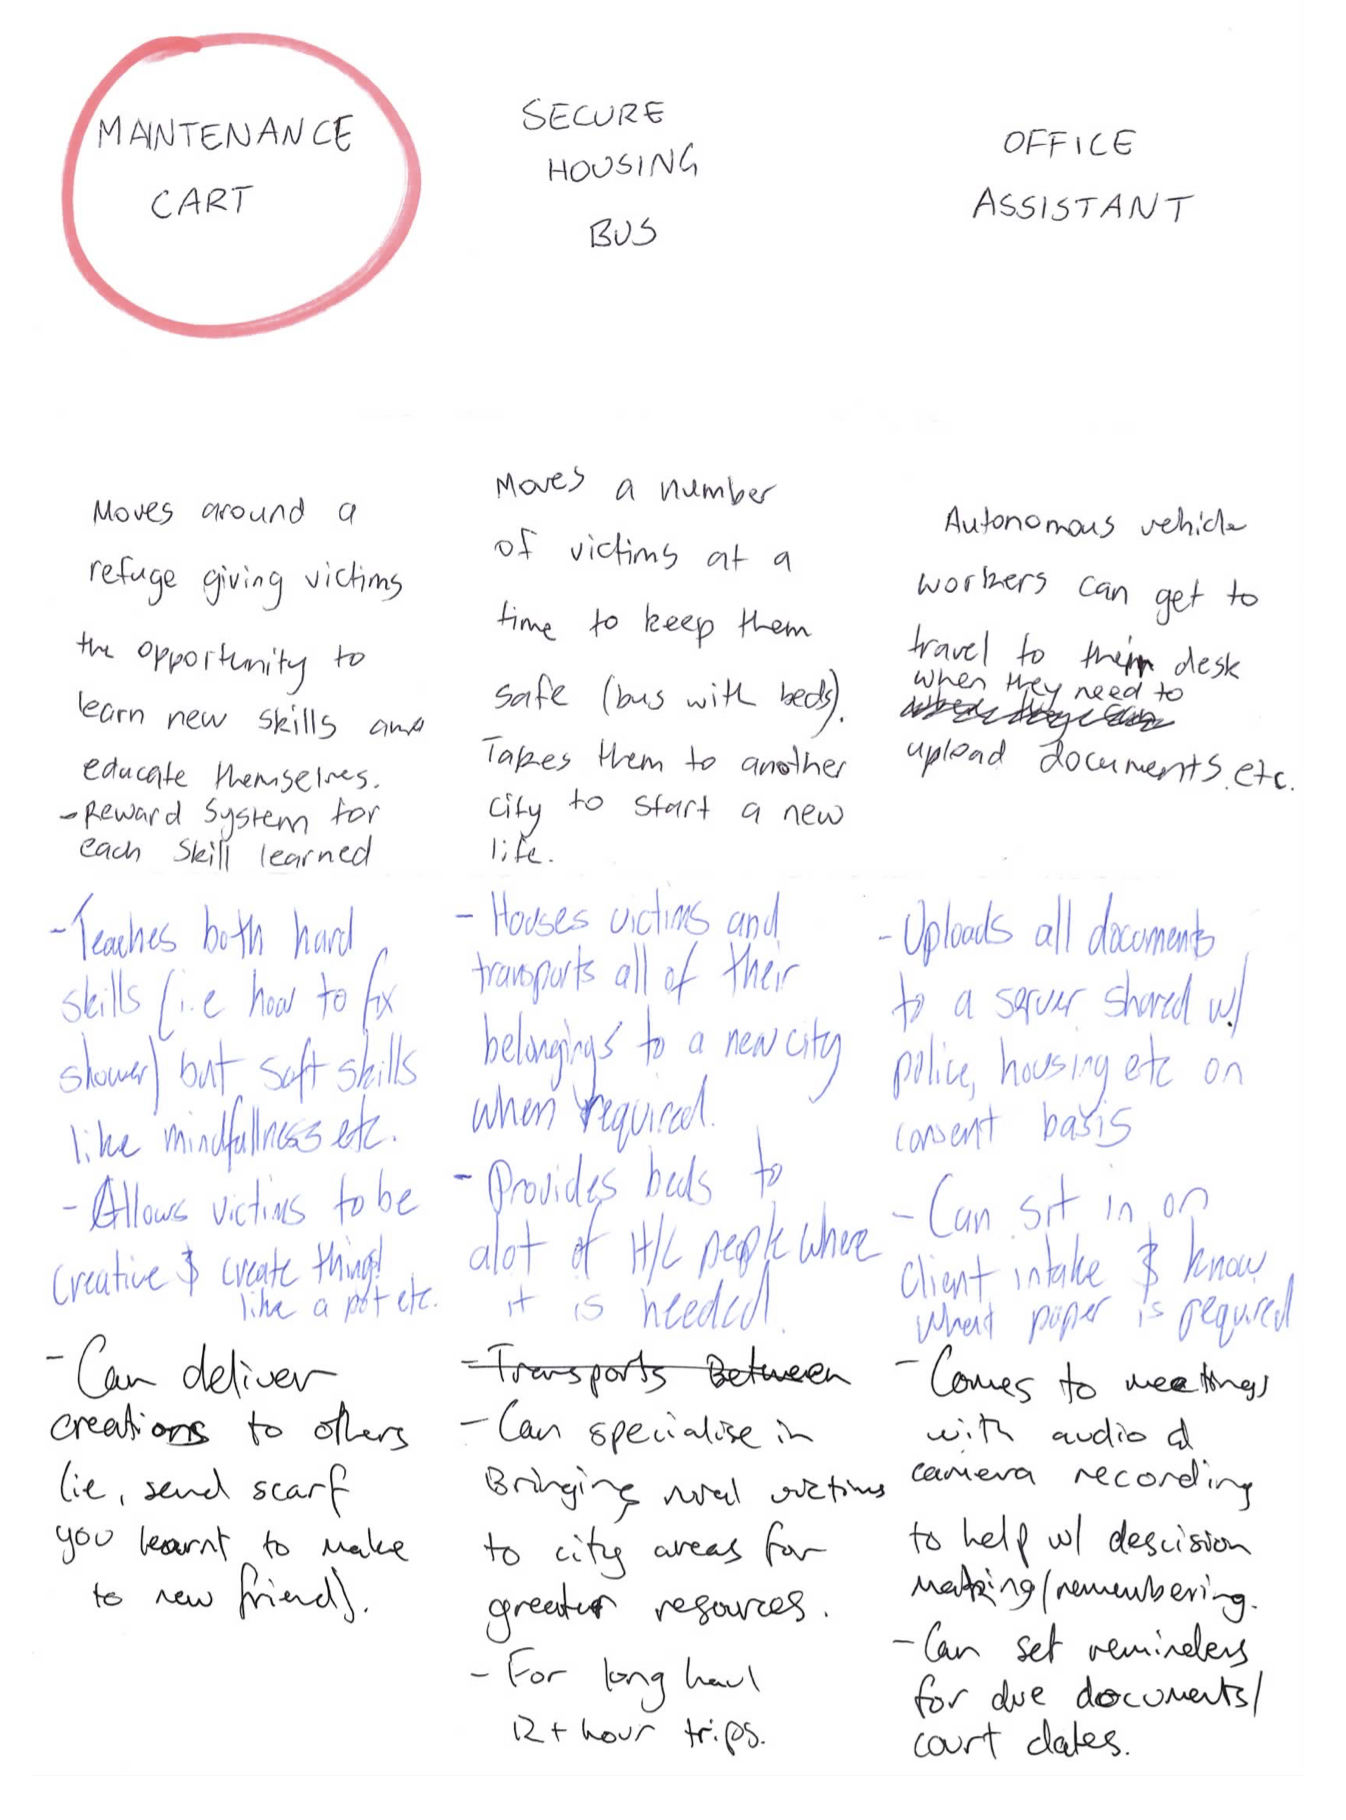 MAINTENANCE
CART
Moves around a
refuge giving victims
the opportunity to
learn new skills and
educate themselves.
- Reward System for
each skill learned
- Teaches both hard
skills (i.e how to fix
shower) but soft skills
like mindfullness etc.
- Allows victims to be
creative & create things!
like a pot etc.
- Can deliver
creations to others
(ie, send scarf
you learnt to make
to new friend).
SECURE
HOUSING
BUS
Moves a number
of victims at a
time to keep them
safe (bus with beds).
Takes them to another
city to start a new
life.
- Houses victims and
transports all of their
belongings to a new city
when required.
- Provides beds to
alot of H/L people where
it is needed.
- Transports Between
- Can specialise in
Bringing rural victims
to city areas for
greater resources.
- For long haul
12+ hour trips.
OFFICE
ASSISTANT
Autonomous vehicle
workers can get to
travel to their desk
when they need to
upload documents etc.
- Uploads all documents
to a server shared w/
police, housing etc on
consent basis
- Can sit in on
client intake & know
what paper is required
- Comes to meetings
with audio &
camera recording
to help w/ descision
making/remembering.
- Can set reminders
for due documents/
court dates.